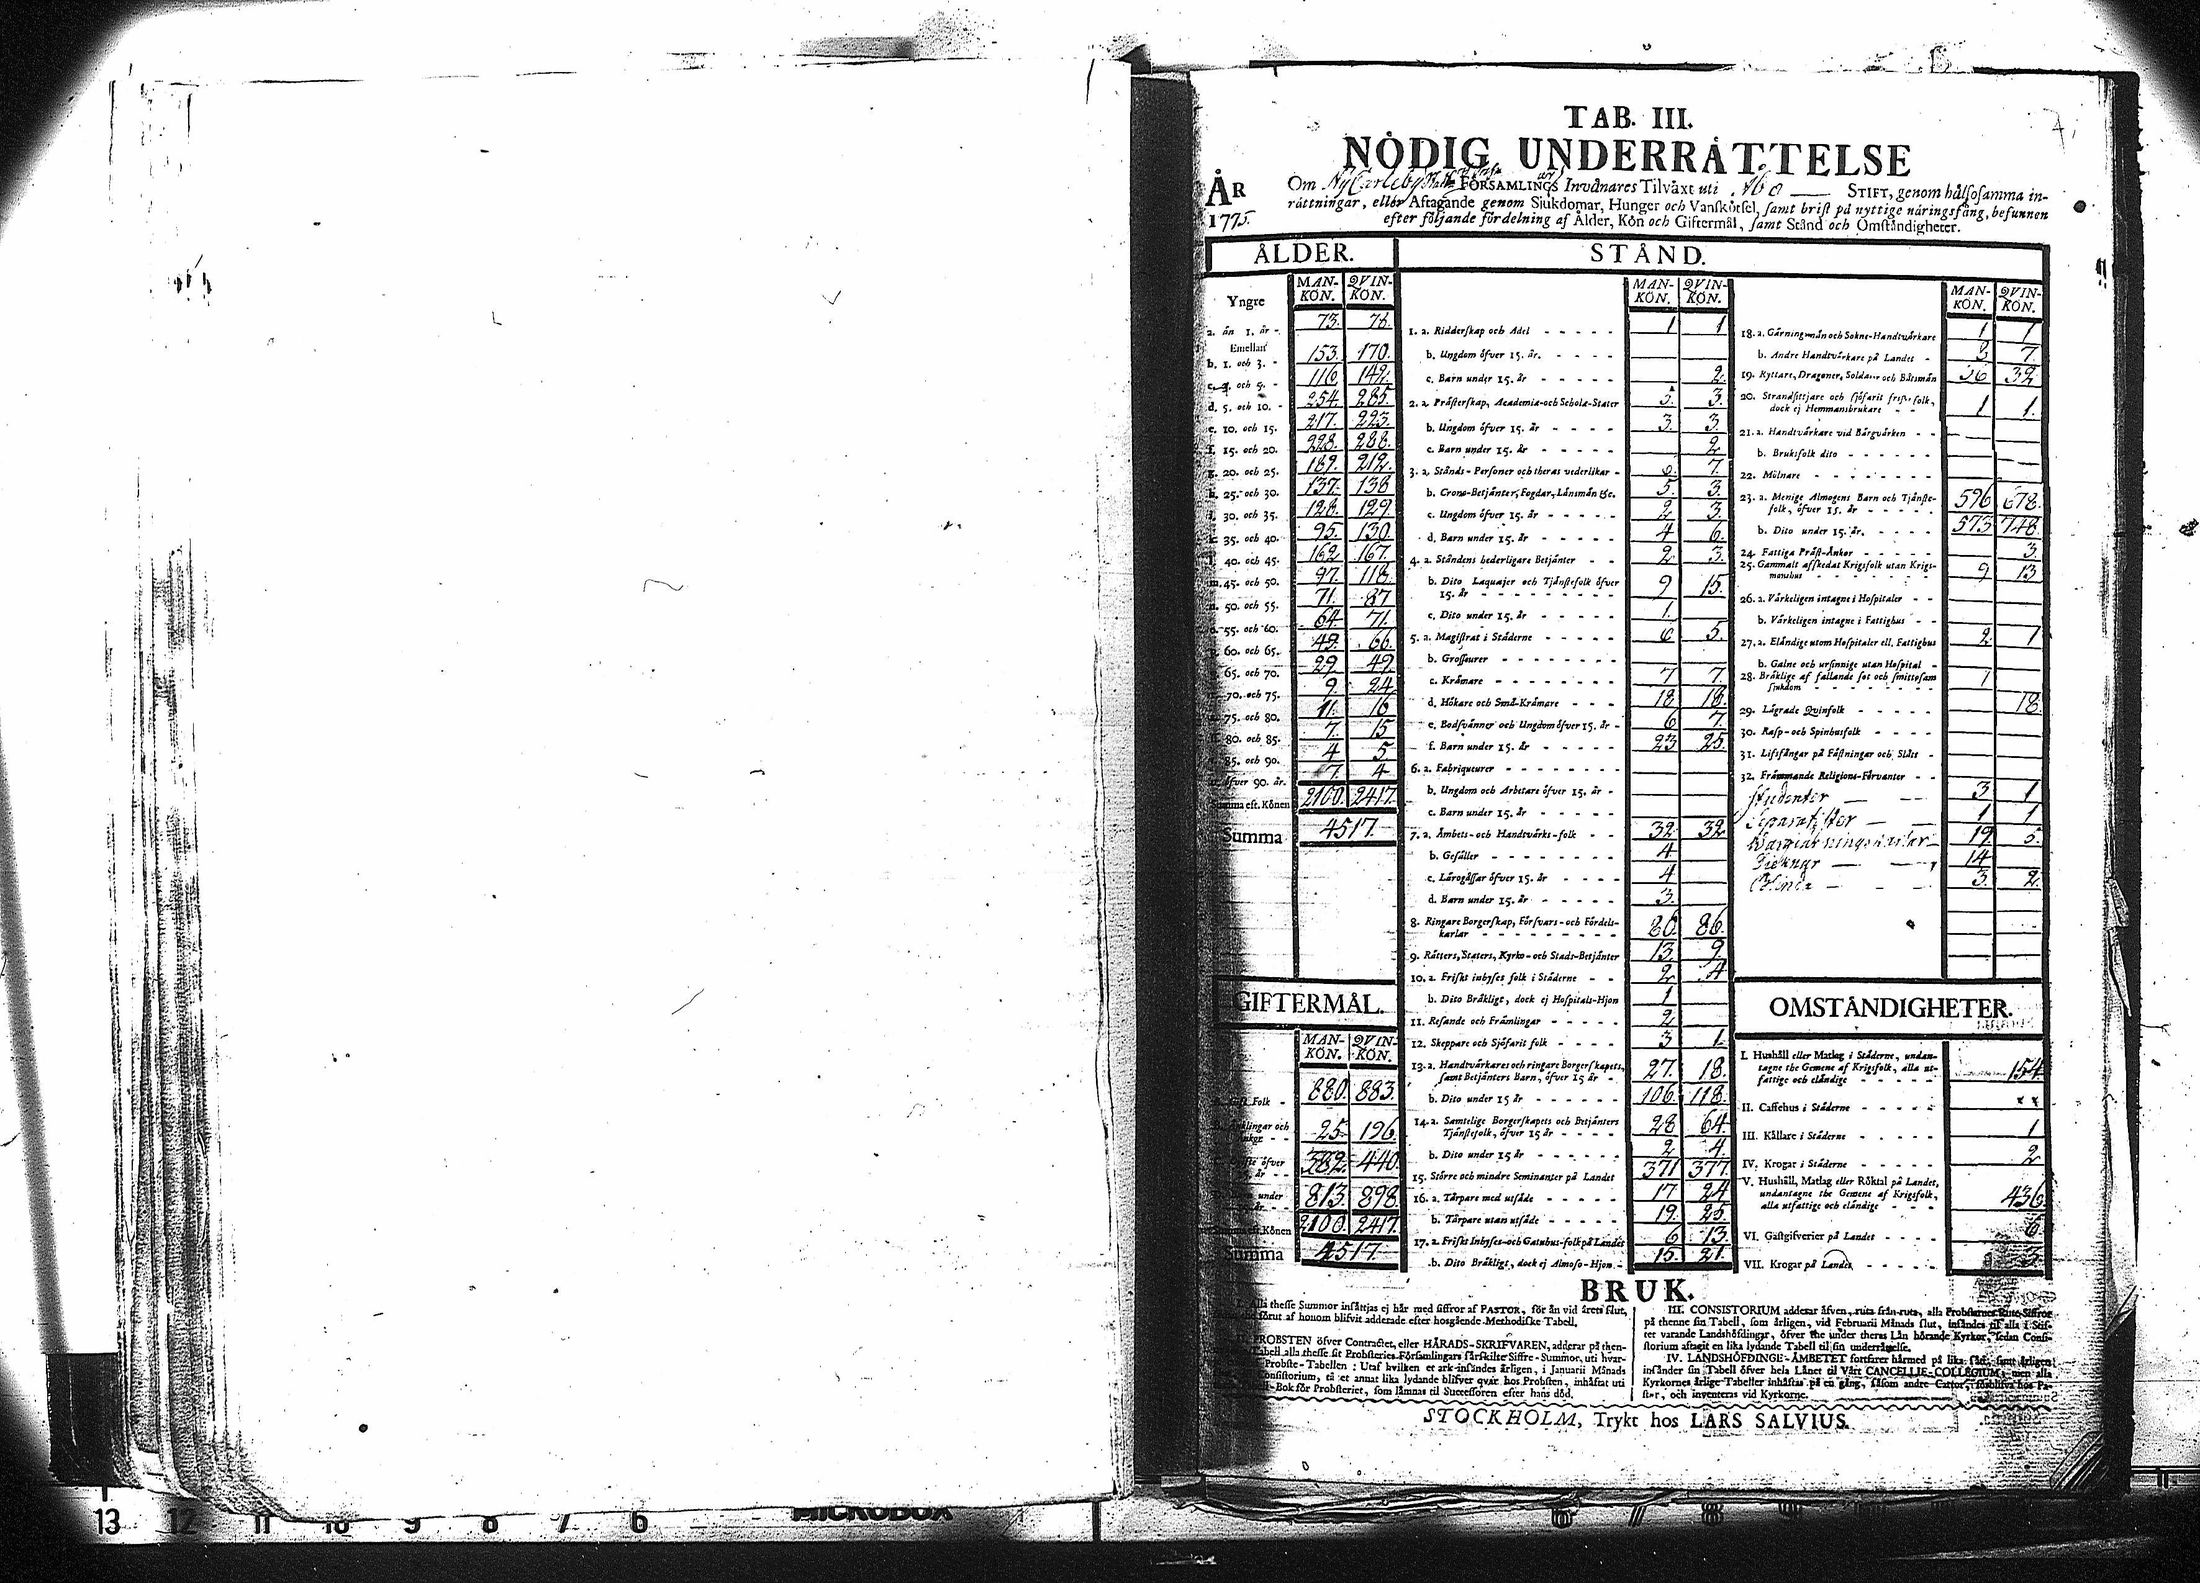 TAB. III.
NÖDIG UNDERRÅTTELSE
ÅR 1775.
Om NyCarleby FÖRSAMLINGS Invånares Tilvåxt uti Åbo STIFT, genom hålsosamma in-
råttningar, eller Aftagande genom Sjukdomar, Hunger och Vanskötsel, samt brist på nyttige näringsfång, befunnen
efter följande fördelning af Ålder, Kön och Giftermål, samt Stånd och Omståndigheter.
ÅLDER.
MAN-KÖN. QVIN-KÖN.
Yngre
a. än 1. år - 73. 78.
Emellan
b. 1. och 3. - 153. 170.
c. 3. och 5. - 116 142.
d. 5. och 10. - 254. 285.
e. 10. och 15. 217. 223.
f. 15. och 20. 228. 288.
g. 20. och 25. 189. 212.
h. 25. och 30. 137. 138
i. 30. och 35. 128. 129.
k. 35. och 40. 95. 130.
l. 40. och 45. 162. 167.
m. 45. och 50. 97. 118.
n. 50. och 55. 71. 87
o. 55. och 60. 64. 71.
60. och 65. 49. 66.
65. och 70. 29. 49.
70. och 75. 9. 24.
75. och 80. 11. 16
80. och 85. 7. 15
85. och 90. 4 5.
öfver 90. år. 7. 4
Summa eft. Könen 2100. 2417.
Summa 4517.
GIFTERMÅL.
MAN-KÖN. QVIN-KÖN.
Folk - 880. 883.
Änklingar och Änkor - - 25. 196.
öfver år - - 382. 440.
under år - - 813. 898.
Könen 2100. 2417.
Summa 4517.
STÅND.
MAN-KÖN. QVIN-KÖN.
1. a. Ridderskap och Adel - - - - - 1 1
b. Ungdom öfver 15. år. - - - -
c. Barn under 15. år - - - - - 2.
2. a. Prästerskap, Academiæ-och Scholæ-Stater 5. 3.
b. Ungdom öfver 15. år - - - - 3. 3.
c. Barn under 15. år - - - - 2
3. a. Stånds-Personer och theras vederlikar - 6. 7.
b. Crono-Betjänter, Fogdar, Länsmän &c. 5. 3.
c. Ungdom öfver 15. år - - - - - 2 3.
d. Barn under 15. år - - - - - 4 6.
4. a. Ståndens hederligare Betjänter - - 2 3.
b. Dito Laquajer och Tjänstefolk öfver
15. år - - - - - - - - - 9 15.
c. Dito under 15. år - - - - - 1.
5. a. Magistrat i Städerne - - - - - 6 5.
b. Grosseurer - - - - - - -
c. Krämare - - - - - - - - 7 7.
d. Hökare och Små-Krämare - - - 18 18.
e. Bodsvänner och Ungdom öfver 15. år - 6 7.
f. Barn under 15. år - - - - - 23 25.
6. a. Fabriqueurer - - - - - - -
b. Ungdom och Arbetare öfver 15. år -
c. Barn under 15. år - - - - -
7. a. Ämbets- och Handtvärks-folk - - 32. 32
b. Gesäller - - - - - - - - 4
c. Lärogåssar öfver 15. år - - - - 4
d. Barn under 15. år - - - - - 3.
8. Ringare Borgerskap, Försvars- och Fördels-
karlar - - - - - - - - - 80. 86.
9. Rätters, Staters, Kyrko- och Stads-Betjänter 13. 9
10. a. Friskt inhyses folk i Städerne - - 2 4
b. Dito Bräkligt, dock ej Hospitals-Hjon 1
11. Resande och Främlingar - - - - - 2
12. Skeppare och Sjöfarit folk - - - - 3 1.
13. a. Handtvärkares och ringare Borgerskapets,
samt Betjänters Barn, öfver 15 år - 27. 18.
b. Dito under 15 år - - - - - 106. 118.
14. a. Samtelige Borgerskapets och Betjänters
Tjänstefolk, öfver 15 år - - - - 28 64.
b. Dito under 15 år - - - - - - 2 4.
15. Större och mindre Seminanter på Landet 371 377.
16. a. Tårpare med utsäde - - - - - 17 24
b. Tårpare utan utsäde - - - - - 19. 25.
17. a. Friskt Inhyses-och Gatuhus-folk på Landet 6 13.
b. Dito Bräkligt, dock ej Almoso-Hjon - 15. 21.
MAN-KÖN. QVIN-KÖN.
18. a. Gärningsmän och Sokne-Handtvärkare 1 1
b. Andre Handtvärkare på Landet - 3 7.
19. Ryttare, Dragoner, Soldater och Båtsmän 36 32
20. Strandsittjare och sjöfarit frist-folk,
dock ej Hemmansbrukare - - 1 1.
21. a. Handtvärkare vid Bärgvärken - -
b. Bruksfolk dito - - - - - -
22. Mölnare - - - - - - - -
23. a. Menige Almogens Barn och Tjänste-
folk, öfver 15. år - - - - - 596 678.
b. Dito under 15. år. - - - - 573 748.
24. Fattiga Präst-Änkor - - - - - 3
25. Gammalt afskedat Krigsfolk utan Krigs-
manshus - - - - - - - 9 13
26. a. Värkeligen intagne i Hospitaler - -
b. Värkeligen intagne i Fattighus - -
27. a. Eländige utom Hospitaler ell. Fattighus 2. 1
b. Galne och ursinnige utan Hospital -
28. Bräklige af fallande sot och smittosam
sjukdom - - - - - - - 1
29. Lägrade Qvinfolk - - - - - 18.
30. Rasp-och Spinhusfolk - - - -
31. Lifsfångar på Fästningar och Slått -
32. Främmande Religions-Förvanter - -
Studenter - - 3 1
Separatister - - 1 1
19. 5.
14
3. 2
OMSTÅNDIGHETER.
I. Hushåll eller Matlag i Städerne, undan-
tagne the Gemene af Krigsfolk, alla ut-
fattige och eländige - - - - - 154.
II. Caffehus i Städerne - - - - - x x
III. Källare i Städerne - - - - - 1
IV. Krogar i Städerne - - - - - 2
V. Hushåll, Matlag eller Röktal på Landet,
undantagne the Gemene af Krigsfolk,
alla utfattige och eländige - - - 436.
VI. Gästgifverier på Landet - - - - 6
VII. Krogar på Landet - - - - - 3
BRUK.
Alla thesse Summor insättjas ej här med siffror af PASTOR, för än vid årets slut,
förut af honom blifvit adderade efter hosgående Methodiske Tabell.
II. PROBSTEN öfver Contractet, eller HÄRADS-SKRIFVAREN, adderar på then-
Tabell alla thesse sit Probsteries Församlingars särskilte Siffre-Summor, uti hvar-
Probste-Tabellen: Utaf hvilken et ark insändes årligen, i Januarii Månads
Consistorium, tå et annat lika lydande blifver qvar hos Probsten, inhäftat uti
Bok för Probsteriet, som lämnas til Successoren efter hans död.
III. CONSISTORIUM adderar äfven, ruta från ruta, alla Probstarnes Rute-Siffror
på thenne sin Tabell, som årligen, vid Februarii Månads slut, insändes til alla i Stif-
tet varande Landshöfdingar, öfver the under theras Län hörande Kyrkor, sedan Consi-
storium aftagit en lika lydande Tabell til sin underrättelse.
IV. LANDSHÖFDINGE-ÄMBETET fortfarer härmed på lika sätt, samt årligen
insänder sin Tabell öfver hela Länet til Vårt CANCELLIE-COLLEGIUM; men alla
Kyrkornes årlige Tabeller inhäftas på en gång, såsom andre Cartor, och blifva hos Pa-
stor, och inventeras vid Kyrkorne.
STOCKHOLM, Trykt hos LARS SALVIUS.
13 12 11 10 9 8 7 6
MICROBOX
6 7 8 9